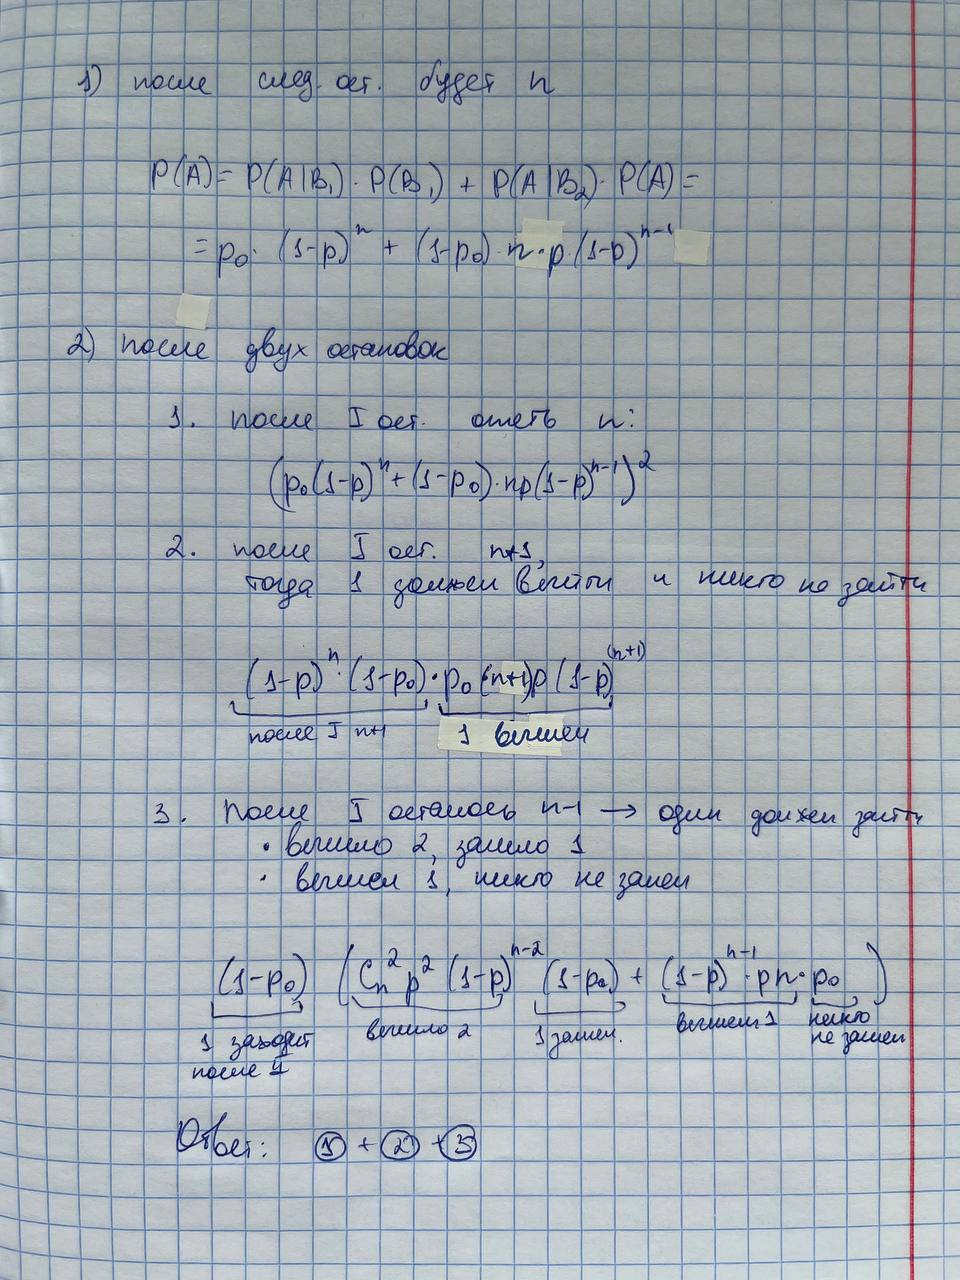 1) после след. ост. будет n
P(A) = P(A|B₁) · P(B₁) + P(A|B₂) · P(A) =
= p₀ · (1-p)ⁿ + (1-p₀) · n · p · (1-p)ⁿ⁻¹
2) после двух остановок
1. после I ост. опять n:
(p₀(1-p)ⁿ + (1-p₀) · np(1-p)ⁿ⁻¹)²
2. после I ост. n+1,
тогда 1 должен выйти и никто не зайти
(1-p)ⁿ · (1-p₀) · p₀ (n+1)p (1-p)⁽ⁿ⁺¹⁾
после I n+1 1 вышел
3. После I осталось n-1 → один должен зайти
• вышло 2, зашло 1
• вышел 1, никто не зашел
(1-p₀) (Cₙ² p² (1-p)ⁿ⁻² (1-p₀) + (1-p)ⁿ⁻¹ · pn · p₀)
1 заходит вышло 2 1 зашел. вышел 1 никто
после II не зашел
Ответ: ① + ② + ③